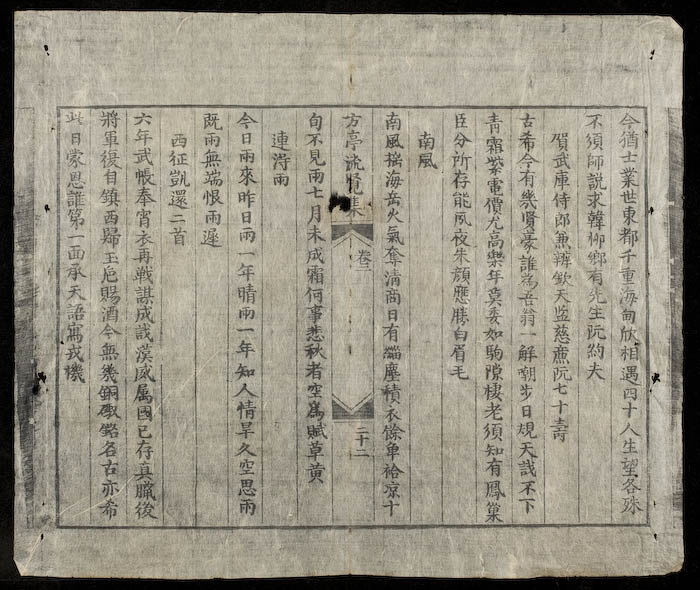 今猶士業世東都千重海甸欣相遇四十人生望各殊
不須師說求韓柳鄉有先生阮約夫
賀武庫侍郎兼辨欽天監慈廉阮七十壽
古希今有幾賢豪誰為吾翁一解朝步日規天誠不下
青霜紫電價尤高樂年莫委如駒隙棲老須知有鳳巢
臣分所存能夙夜朱顏應勝白眉毛
南風
南風揣海岳火氣奪清商日有緇塵積衣餘單袷凉十
方亭流覽集
卷三
二十二
旬不見雨七月未成霜何事悲秋者空為賦草黄
連得雨
今日雨來昨日雨一年晴雨一年知人情旱久空思雨
既雨無端恨雨遲
西征凱還二首
六年武帳奉宵衣再戰謀成誠漢威属國已存真臘後
將軍復自鎮西歸玉卮賜酒今無幾銅礅銘名古亦希
此日蒙恩誰第一面承天語寫戎機